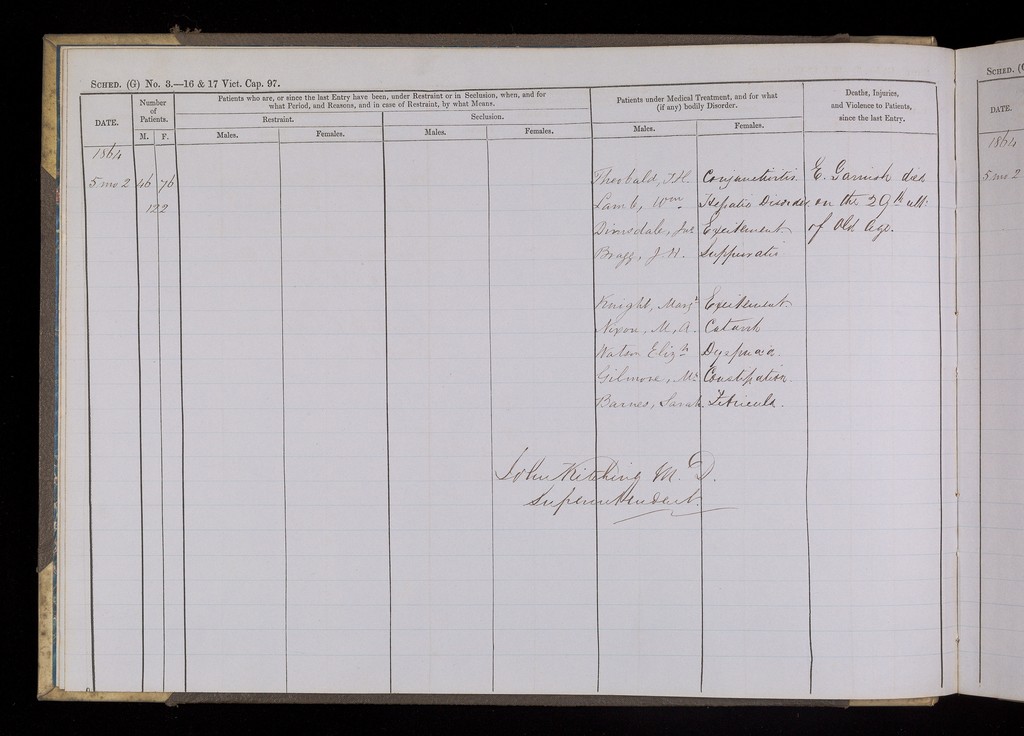 SCHED. (G) No. 3.—16 & 17 Vict. Cap. 97.
DATE.
Number of Patients.
M. F.
Patients who are, or since the last Entry have been, under Restraint or in Seclusion, when, and for
what Period, and Reasons, and in case of Restraint, by what Means.
Restraint.
Seclusion.
Males. Females. Males. Females.
Patients under Medical Treatment, and for what
(if any) bodily Disorder.
Males. Females.
Deaths, Injuries,
and Violence to Patients,
since the last Entry.
1864
5 mo 2 46 76 Theobald, J.H. Conjunctivitis. E. Garnish died
122 Lamb, Wm Hepatic Disorder on the 29th ult:
Dimsdale, Jos Excitement of Old Age.
Bragg, J. H. Suppuratio
Knight, Margt Excitement
Nixon, M. A. Catarrh
Watson Elizth Dyspnoea
Gilmore, Constipation.
Barnes, Sarah Febricula.
John Kitching M. D.
Superintendent.
SCHED. (G
DATE.
1864
5 mo 2